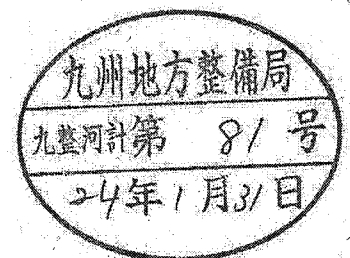 九州地方整備局
九整河計第 81 号
24年1月31日